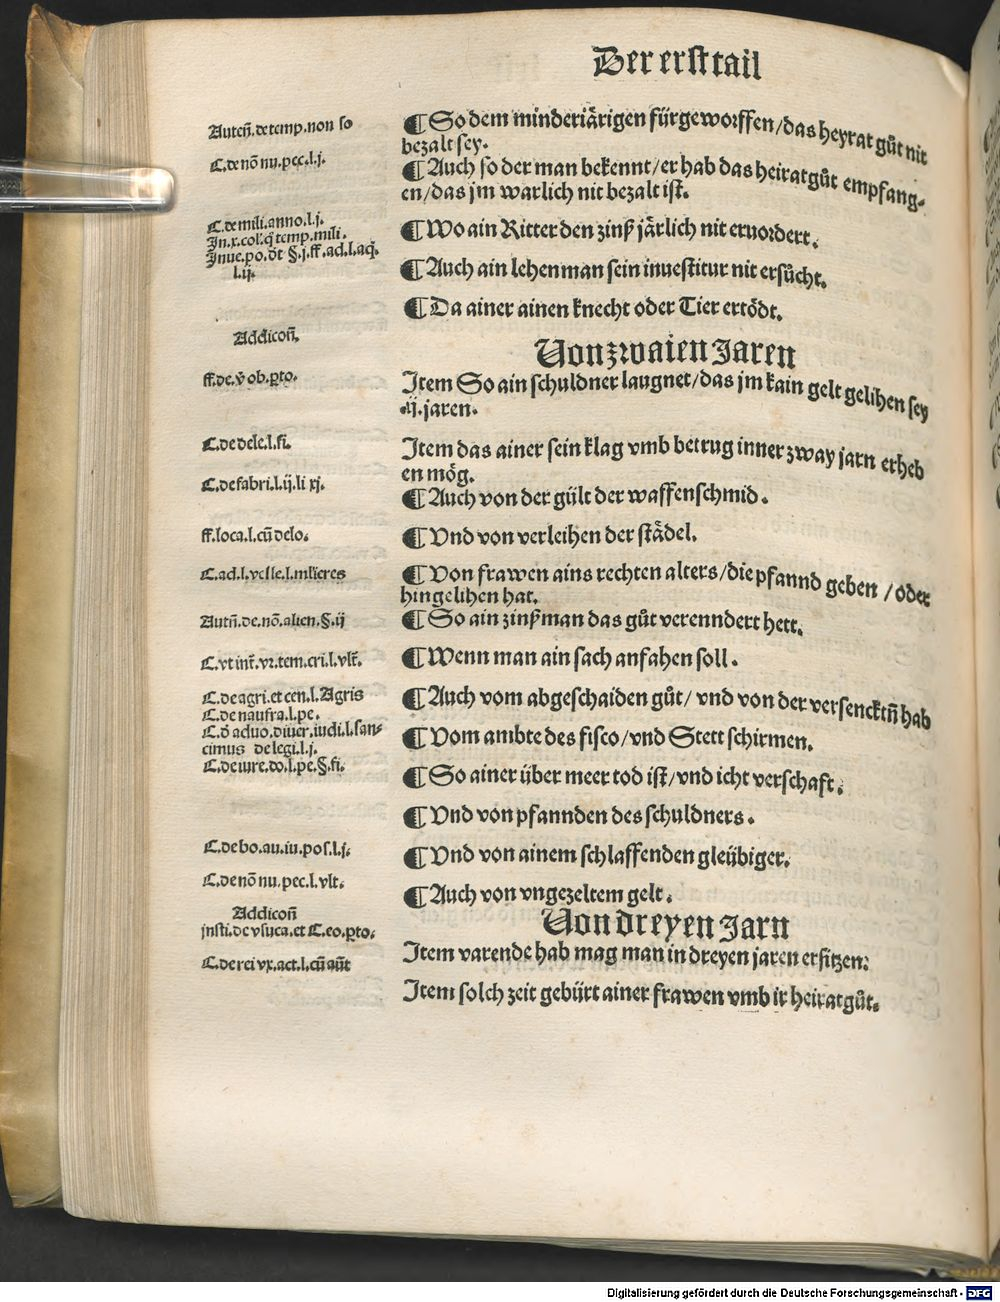 Der erst tail
Auten̄. de temp. non so
¶ So dem minderiärigen fürgeworffen / das heyrat gůt nit
bezalt sey.
C. de nō nu. pec. l. j.
¶ Auch so der man bekennt / er hab das heiratgůt empfang-
en / das jm warlich nit bezalt ist.
C. de mili. anno. l. j.
¶ Wo ain Ritter den zinß järlich nit eruordert.
In. x. col. q̄ temp. mili.
Inue. po. dt §. j. ff. ad. l. aq̄.
l. ij.
¶ Auch ain lehenman sein inuestitur nit ersůcht.
¶ Da ainer ainen knecht oder Tier ertödt.
Addicoñ.
Von zwaien Jaren
ff. de. ṽ ob. ꝑto.
Item So ain schuldner laugnet / das jm kain gelt gelihen sey
.ij. jaren.
C. de dele. l. fi.
Item das ainer sein klag vmb betrug inner zway jarn erheb
en mög.
C. de fabri. l. ij. li xj.
¶ Auch von der gült der waffenschmid.
ff. loca. l. cū delo.
¶ Vnd von verleihen der städel.
C. ad. l. velle. l. mlieres
¶ Von frawen ains rechten alters / die pfannd geben / oder
hingelihen hat.
Autñ. de. nō. alien. §. ij
¶ So ain zinßman das gůt verenndert hett.
C. vt int̄. vr. tem. cri. l. vlt̄.
¶ Wenn man ain sach anfahen soll.
C. de agri. et cen. l. Agris
C. de naufra. l. pe.
¶ Auch vom abgeschaiden gůt / vnd von der versencktñ hab
C. d̄ aduo. diuer. iudi. l. san-
cimus de legi. l. j.
¶ Vom ambte des fisco / vnd Stett schirmen.
C. de iure. do. l. pe. §. fi.
¶ So ainer über meer tod ist / vnd icht verschaft.
¶ Vnd von pfannden des schuldners.
C. de bo. au. iu. pos. l. j.
¶ Vnd von ainem schlaffenden gleübiger.
C. de nō nu. pec. l. vlt.
¶ Auch von vngezeltem gelt.
Addicoñ
Von dreyen Jarn
insti. de vsuca. et C. eo. ꝑto.
Item varende hab mag man in dreyen jaren ersitzen:
C. de rei vx. act. l. cū aūt
Item solch zeit gebürt ainer frawen vmb ir heiratgůt.
Digitalisierung gefördert durch die Deutsche Forschungsgemeinschaft - DFG